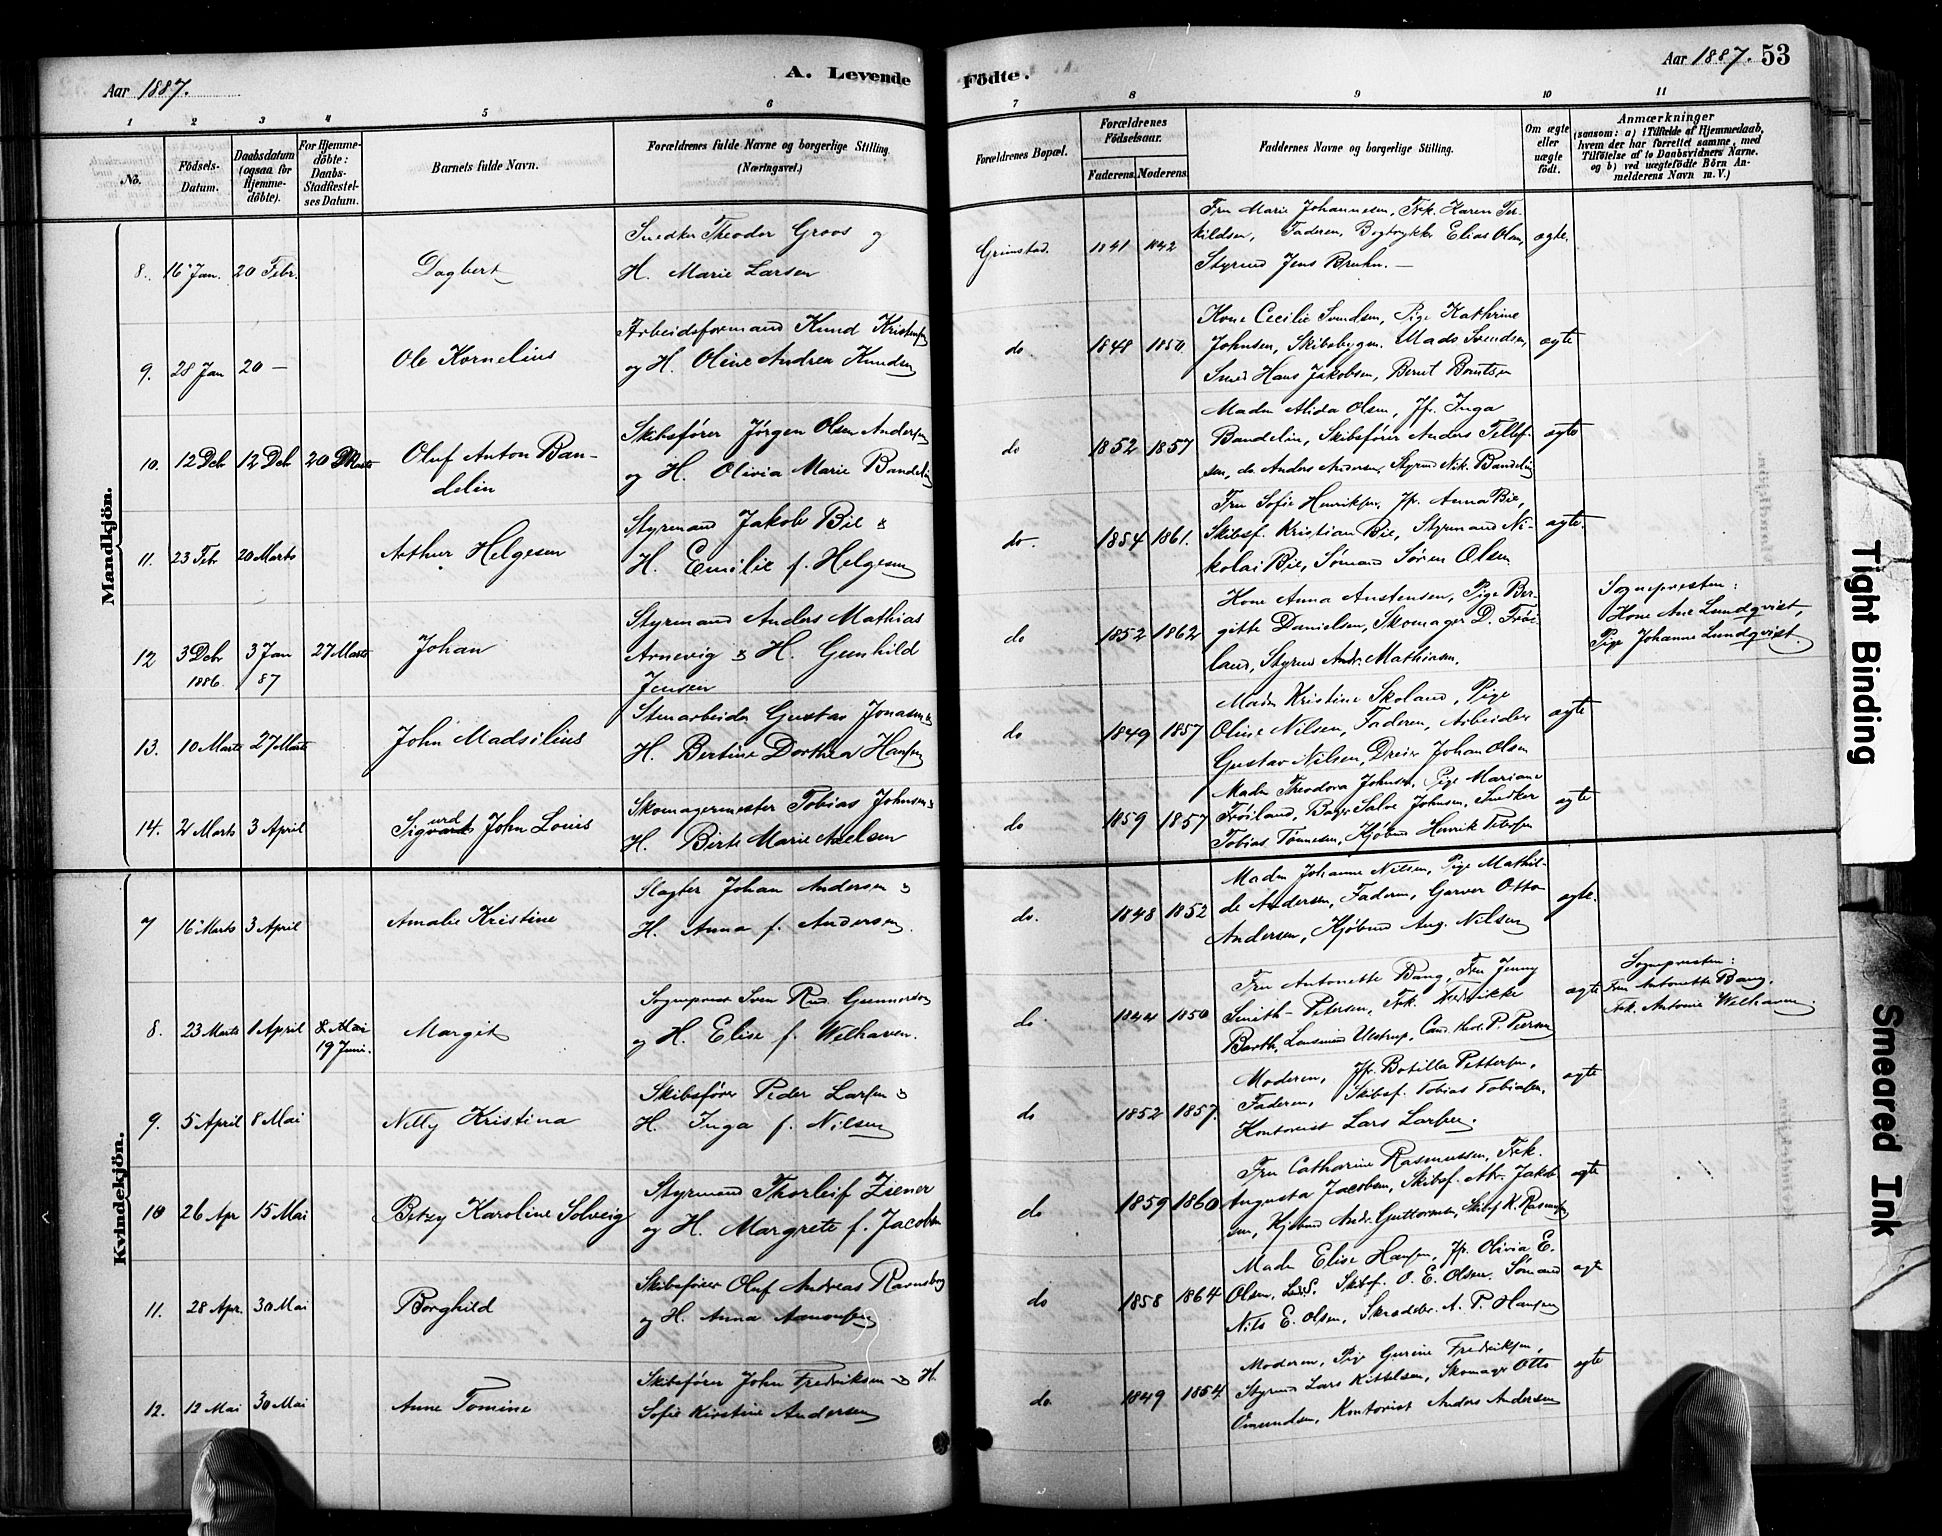 Aar 1887.
A. Levende
1 2 3 4 5 6
No.
Födsels-
Datum.
Daabsdatum
(ogsaa for
Hjemme-
døbte).
For Hjemme-
døbte:
Daabs-
Stadfæstel-
ses Datum.
Barnets fulde Navn.
Forældrenes fulde Navne og borgerlige Stilling.
(Næringsvei.)
Mandkjön.
8. 16 Jan. 20 Febr. Dagbert
Snedker Theodor Groos og
H. Marie Larsen
9. 28 Jan 20 — Ole Kornelius
Arbeidsformand Knud Kristensen
og H. Oline Andrea Knudsen
10. 12 Deb 12 Deb 20 Marts Oluf Anton Ban-
delin
Skibsfører Jørgen Olsen Andersen
og H. Olivia Marie Bandelin
11. 23 Feb 20 Marts Arthur Helgesen
Styrmand Jakob Bie &
H. Emilie f. Helgesen
12 3 Debr 3 Jan 27 Marts Johan
1886. /87
Styrmand Anders Mathias
Arnevig & H. Gunhild
Jensen
13. 10 Marts 27 Marts John Madsilius
Stenarbeider Gustav Jonasen
H. Bertine Dorthea Hansen
14. 2 Marts 3 April Sigurd John Louis
Skomagermester Tobias Johnsen &
H. Birte Marie Nielsen
Kvindekjön.
7 16 Marts 3 April Amalie Kristine
Slagter Johan Andersen &
H. Anna f. Andersen.
8. 23 Marts 1 April 8 Mai Margit
19 Juni.
Sogneprest Sven Rud. Gunnerson
og H. Elise f. Welhaven.
9. 5 April 8 Mai Nelly Kristina
Skibsfører Peder Larsen &
H. Inga f. Nilsen
10 26 Apr 15 Mai Betzy Karoline Solveig
Styrmand Thorleif Zeiner
og H. Margrete f. Jacobsen
11. 28 Apr. 30 Mai Borghild
Skibsfører Oluf Andreas Ravnsborg
og H. Anna Aanonsen
12. 12 Mai 30 Mai Anne Tomine
Skibsfører John Fredriksen & H.
Sofie Kirstine Andersen
Födte.
Aar 1887. 53
7 8 9 10 11
Forældrenes Bopæl.
Forældrenes
Födselsaar.
Faderens. Moderens.
Faddernes Navne og borgerlige Stilling.
Om ægte
eller
uægte
födt.
Anmærkninger
(saasom: a) i Tilfælde af Hjemmedaab,
hvem der har forrettet samme, med
Tilföielse af to Daabsvidners Navne.
og b) ved uægtefödte Börn An-
melderens Navn m. V.)
Grimstad. 1841 1842
Fru Marie Johannesen, Frk. Karen Ter-
kildsen, Faderen, Bogtrykker Elias Olsen,
Styrmd Jens Bruhn. —
ægte.
do 1848 1850.
Kone Cecilie Svendsen, Pige Kathrine
Johnsen, Skibsbygm. Mads Svendsen,
Smed Hans Jakobsen, Bernt Berntsen
ægte
do 1852 1857
Madm Alida Olsen, Jfr. Inga
Bandelin, Skibsfører Anders Tellef-
sen, do. Anders Andersen, Styrmd Nik. Bandelin
ægte
do. 1854 1861.
Fru Sofie Henriksen, Jfr. Anna Bie,
Skibsf. Kristian Bie, Styrmand Ni-
kolai Bie, Sømand Søren Olsen
ægte.
do 1852 1862
Kone Anna Austensen, Pige Ber-
gitte Danielsen, Skomager D. Frøi-
land, Styrmd Andr. Mathiasen.
Sognepresten:
Kone Ane Lundqvist,
Pige Johanne Lundqvist.
do 1849 1857
Madm Kristine Skoland, Pige
Oline Nilsen, Faderen, Arbeider
Gustav Nilsen, Dreier Johan Olsen
ægte
do 1859 1857
Madm Theodora Johnsen, Pige Mariane
Frøiland, Bager Salve Johnsen, Snedker
Tobias Tønnesen, Kjøbmd Henrik Petersen
ægte
do. 1848 1852
Madm Johanne Nilsen, Pige Mathil-
de Andersen, Faderen, Garver Otto
Andersen, Kjøbmd Aug. Nilsen
ægte.
do 1844 1850
Fru Antonette Bang, Fru Jenny
Smith-Petersen, Frk. Fredrikke
Barth, Lensmand Ulstrup, Cand. theol. P.
ægte
Sognepresten:
Fru Antonette Bang,
Frk. Antonie Welhaven.
do 1852 1857.
Moderen, Jfr. Botilla Pettersen,
Faderen, Skibsf. Tobias Tobiasen,
Kontorist Lars Larsen.
ægte
do 1859 1860
Fru Catharine Rasmussen, Frk.
Augusta Jacobsen, Skibsf. Jakob-
sen, Kjøbmd Andr. Guttormsen, Skibsf. K. Rasmussen
ægte
do 1858 1864
Madm Elise Hansen, Jfr. Olivia E.
Olsen, Skibsf. O. E. Olsen, Sømand
Nils E. Olsen, Skrædder A. P. Hansen
ægte
do 1849 1854.
Moderen, Pige Gurine Fredriksen,
Styrmd Lars Kittelsen, Skomager Otto
Omundsen, Kontorist Anders Andersen
ægte
Tight Binding
Smeared Ink